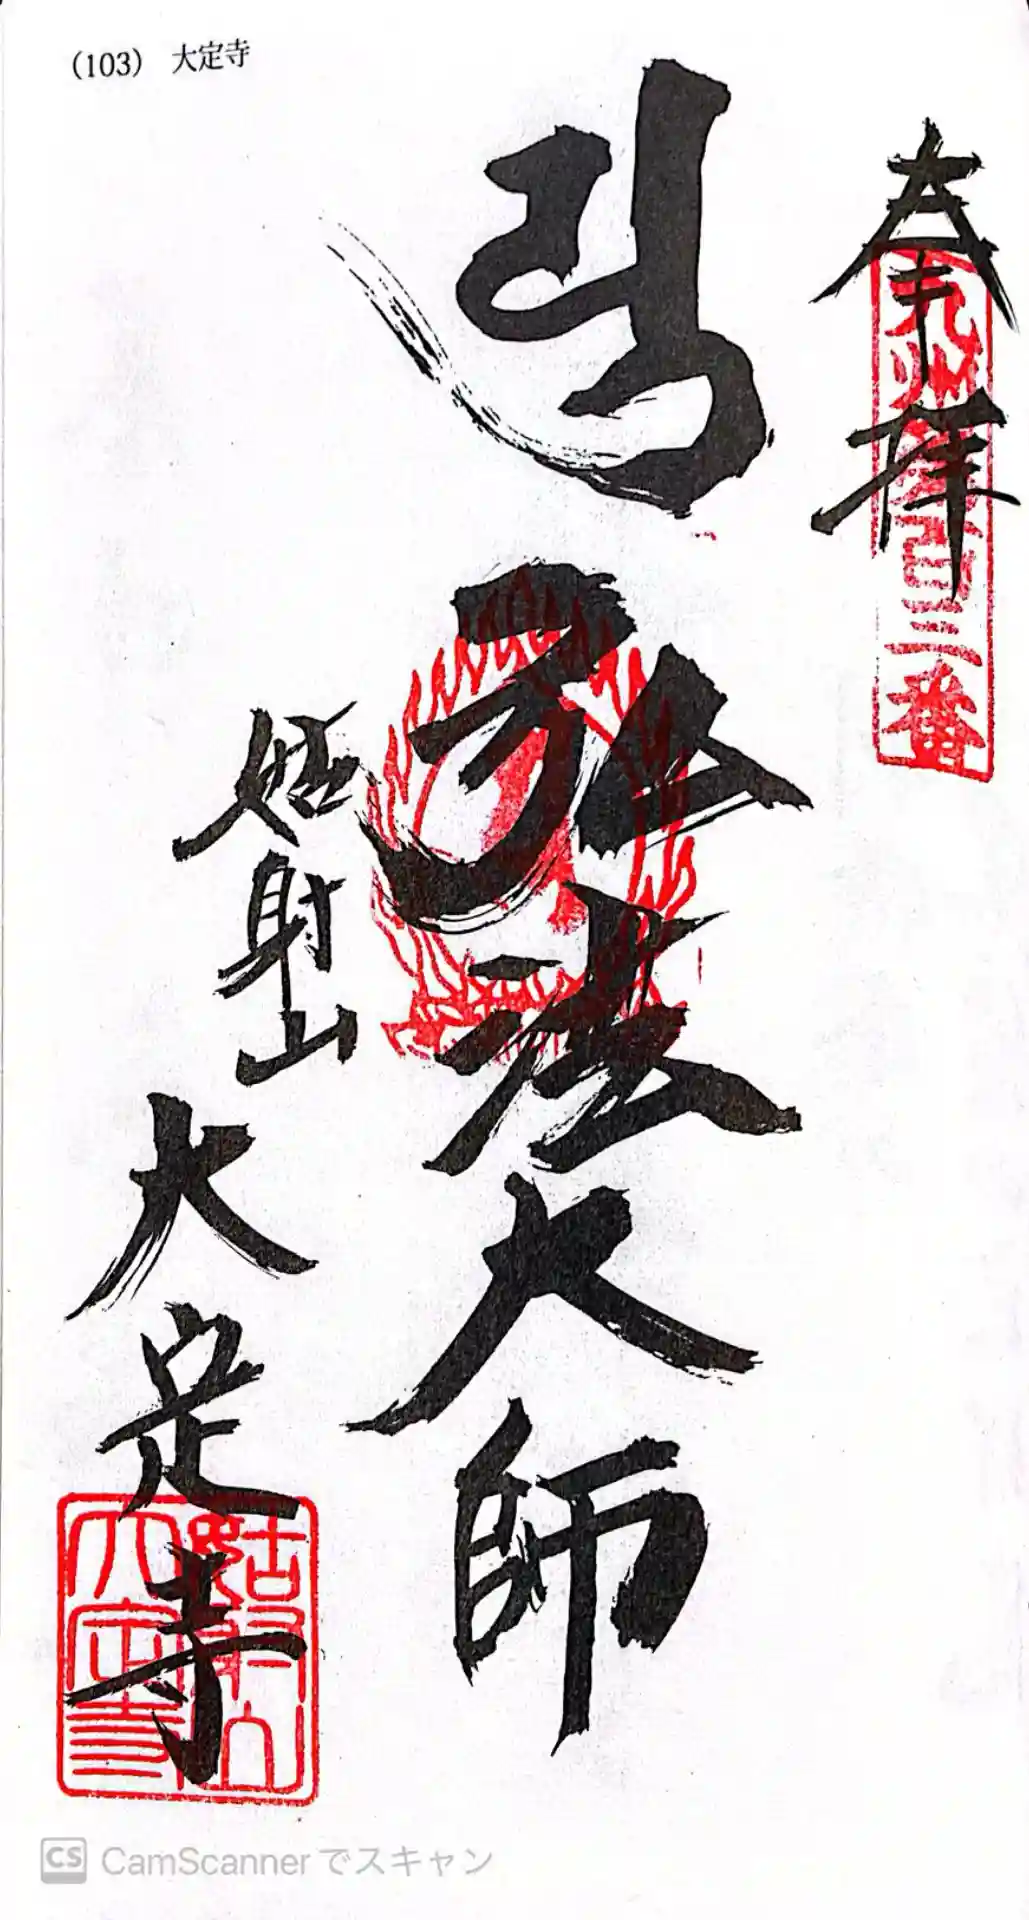 (103) 大定寺
奉拝
九州第百三番
弘法大師
姑射山
大定寺
姑射山
大定寺
CS CamScannerでスキャン